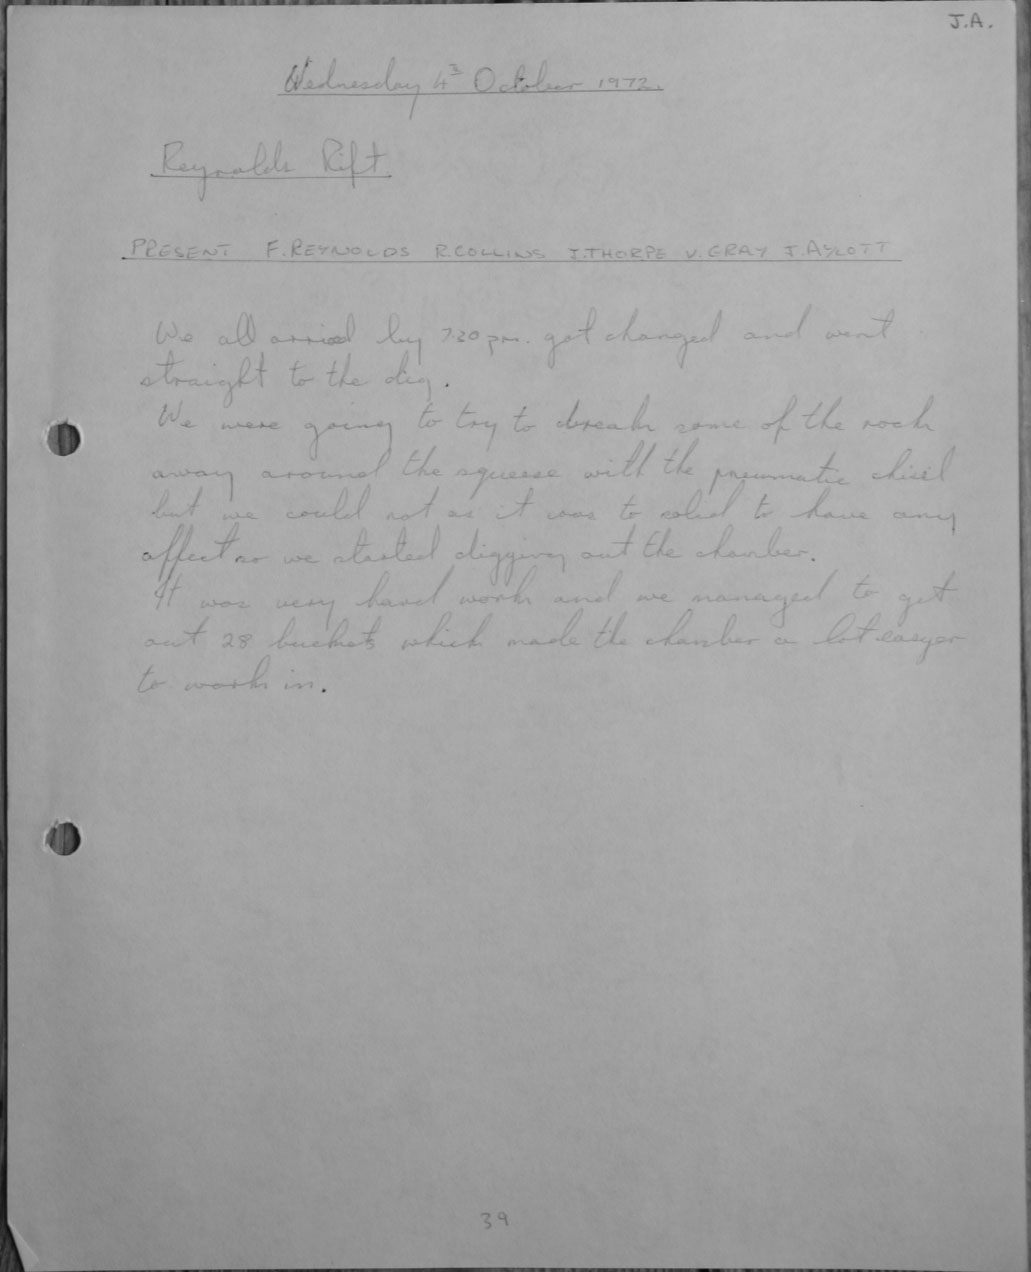 J.A.
Wednesday 4th October 1972.
Reynolds Rift
PRESENT F. REYNOLDS R. COLLINS J. THORPE V. GRAY J. AYLOTT
We all arrived by 7.20 pm. got changed and went
straight to the dig.
We were going to try to break some of the rock
away around the squeese with the pneumatic chisil
but we could not as it was to solid to have any
affect so we started digging out the chamber.
It was very hard work and we managed to get
out 28 buckets which made the chamber a lot easyer
to work in.
39